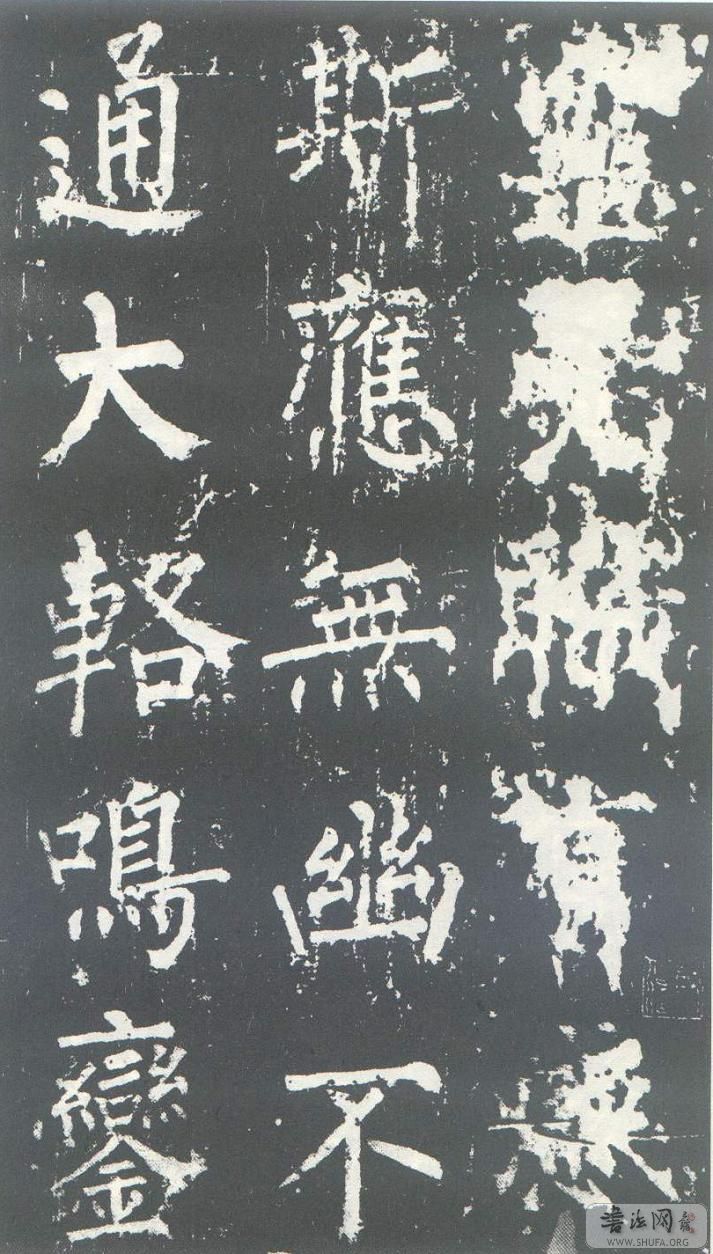 靈受職有感
斯應無幽不
通大輅鳴鑾
書法网
WWW.SHUFA.ORG